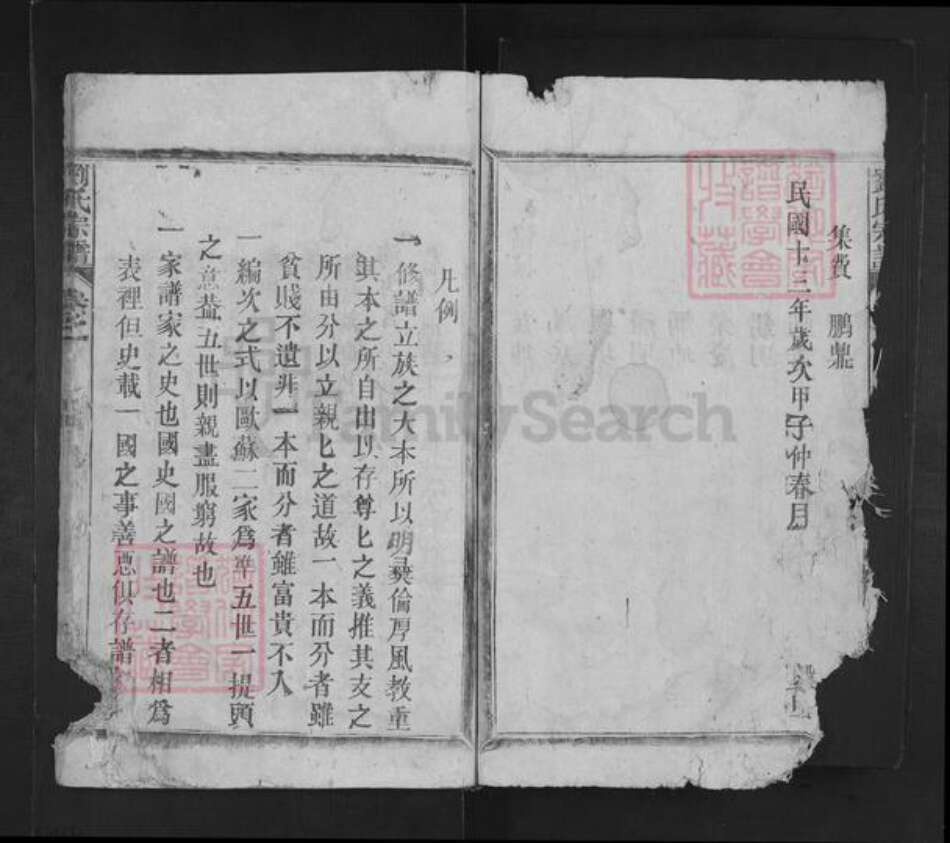 集費 鵬鼎
民國十三年歲次甲子仲春月
凡例
一修譜立族之大本所以明彝倫厚風教重
其本之所自出以存尊匕之義推其支之
所由分以立親匕之道故一本而分者雖
貧賤不遺非一本而分者雖富貴不入
一編次之式以歐蘇二家爲準五世一提頭
之意葢五世則親盡服窮故也
一家譜家之史也國史國之譜也二者相爲
表裡但史載一國之事善惡俱存譜
劉氏宗譜
FamilySearch